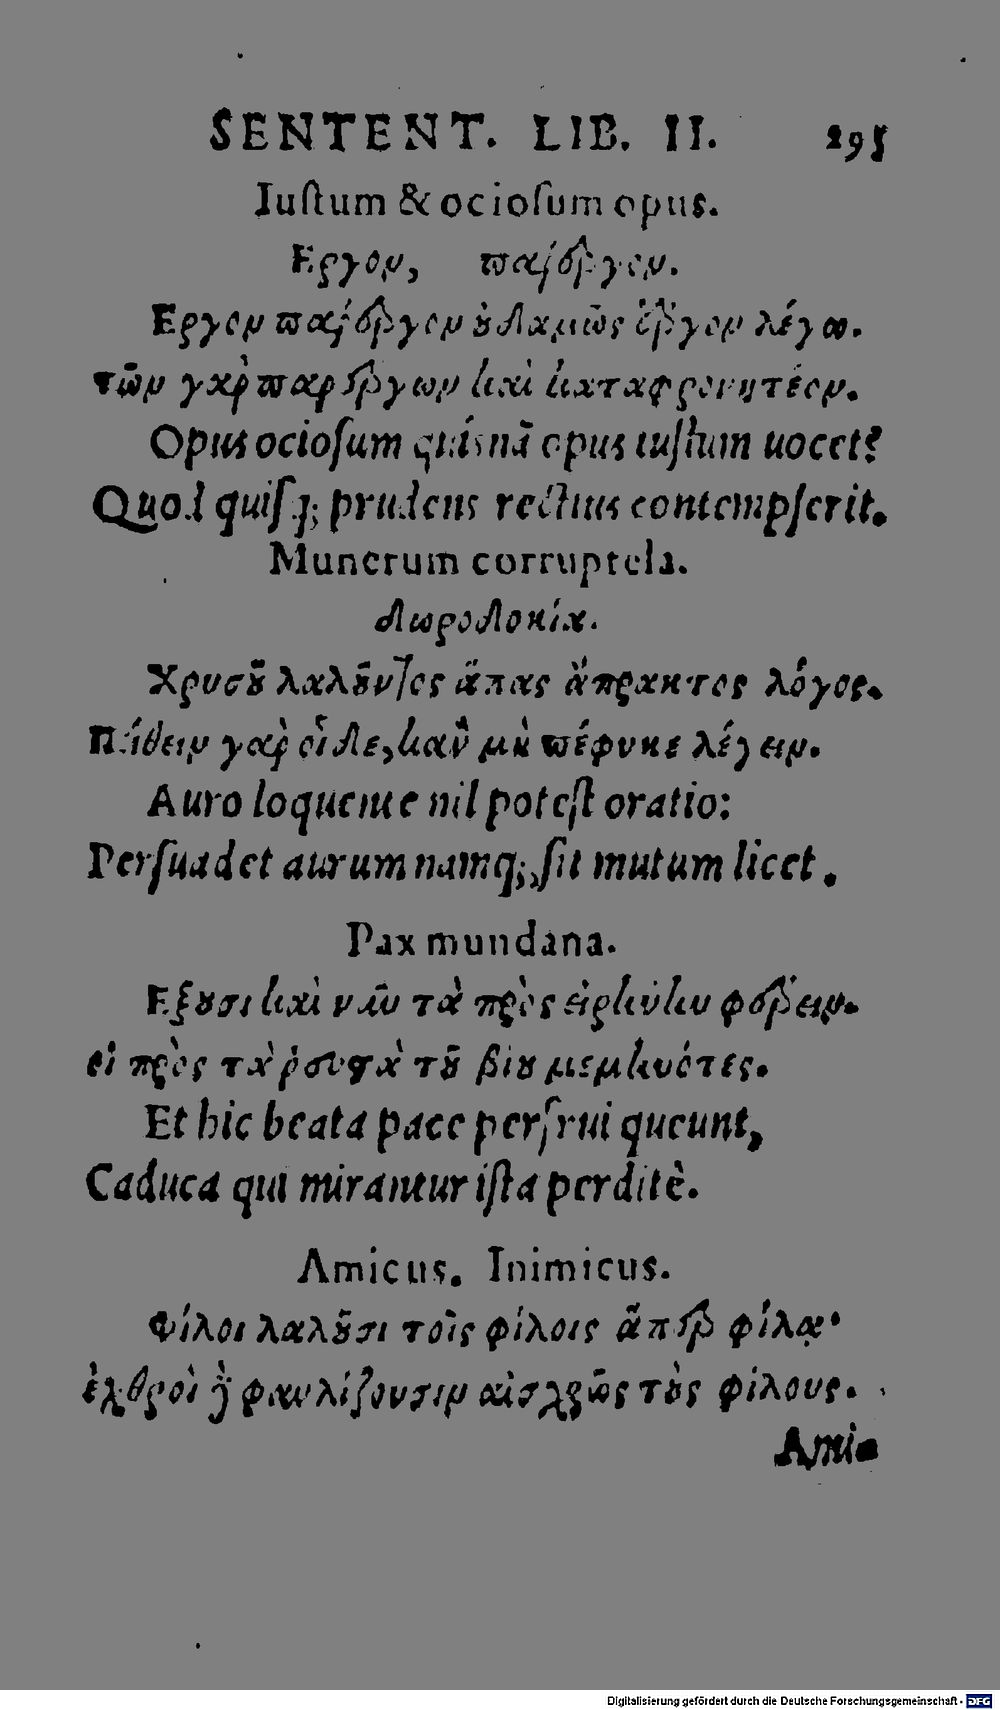 SENTENT. LIB. II. 295
Iuſtum & ocioſum opus.
Εργον, παρέργον.
Εργον παρέργον ȣδαμῶς ἔργον λέγω.
τῶν γαρ̀ παρέργων καὶ καταφρονητέον.
Opus ocioſum quiſnã opus iuſtum uocet?
Quod quiſq; prudens rectius contempſerit.
Munerum corruptela.
δωροδοκία.
Χρυσȣ͂ λαλȣ͂ντος ἅπας ἄπρακτος λόγος.
Πείθειν γαρ̀ οἶδε, κᾂν μὴ πέφυκε λέγειν.
Auro loquente nil poteſt oratio:
Perſuadet aurum namq;, ſit mutum licet.
Pax mundana.
Εξȣσι καὶ νῦν τὰ πρὸς εἰρήνην φέρειν.
οἱ πρὸς τὰ ῥευστὰ τȣ͂ βίȣ μεμηνότες.
Et hic beata pace perfrui queunt,
Caduca qui mirantur iſta perditè.
Amicus. Inimicus.
Φίλοι λαλȣ͂σι τοῖς φίλοις ἅπερ φίλα·
ἐχθροὶ δὲ φαυλίζουσιν αἰσχρῶς τȣ̀ς φίλους.
Ami-
Digitalisierung gefördert durch die Deutsche Forschungsgemeinschaft - DFG